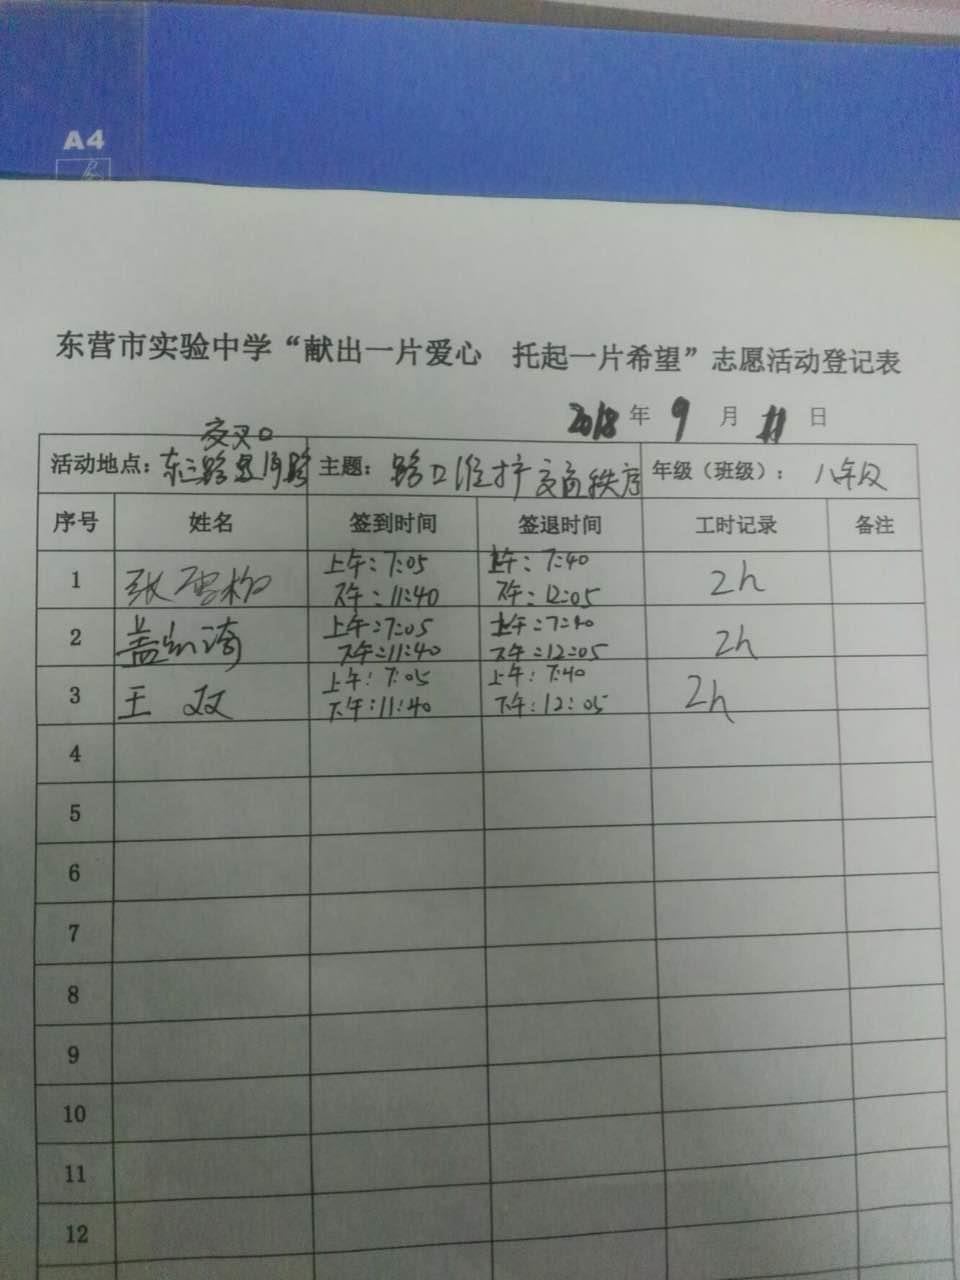 A4
东营市实验中学“献出一片爱心 托起一片希望”志愿活动登记表
2018年 9 月 11 日
交叉口
活动地点：东三路 路 主题：路口维护交通秩序 年级（班级）：八年级
序号 姓名 签到时间 签退时间 工时记录 备注
1 张 柳 上午：7:05 上午：7:40 2h
下午：11:40 下午：12:05
2 盖 上午：7:05 上午：7:40 2h
下午：11:40 下午：12:05
3 王 双 上午：7:05 上午：7:40 2h
下午：11:40 下午：12:05
4
5
6
7
8
9
10
11
12